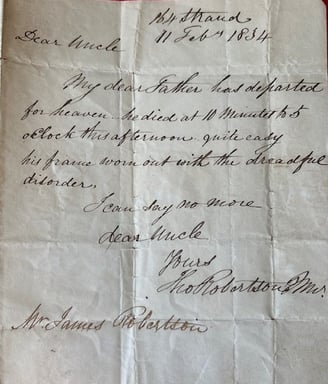 164 Strand
11 Feby 1834
Dear Uncle
My dear Father has departed
for heaven. he died at 10 Minutes to 5
oClock this afternoon quite easy
his frame worn out with the dreadful
disorder.
I can say no more
dear Uncle
Yours
Tho Robertson
Mr James Robertson